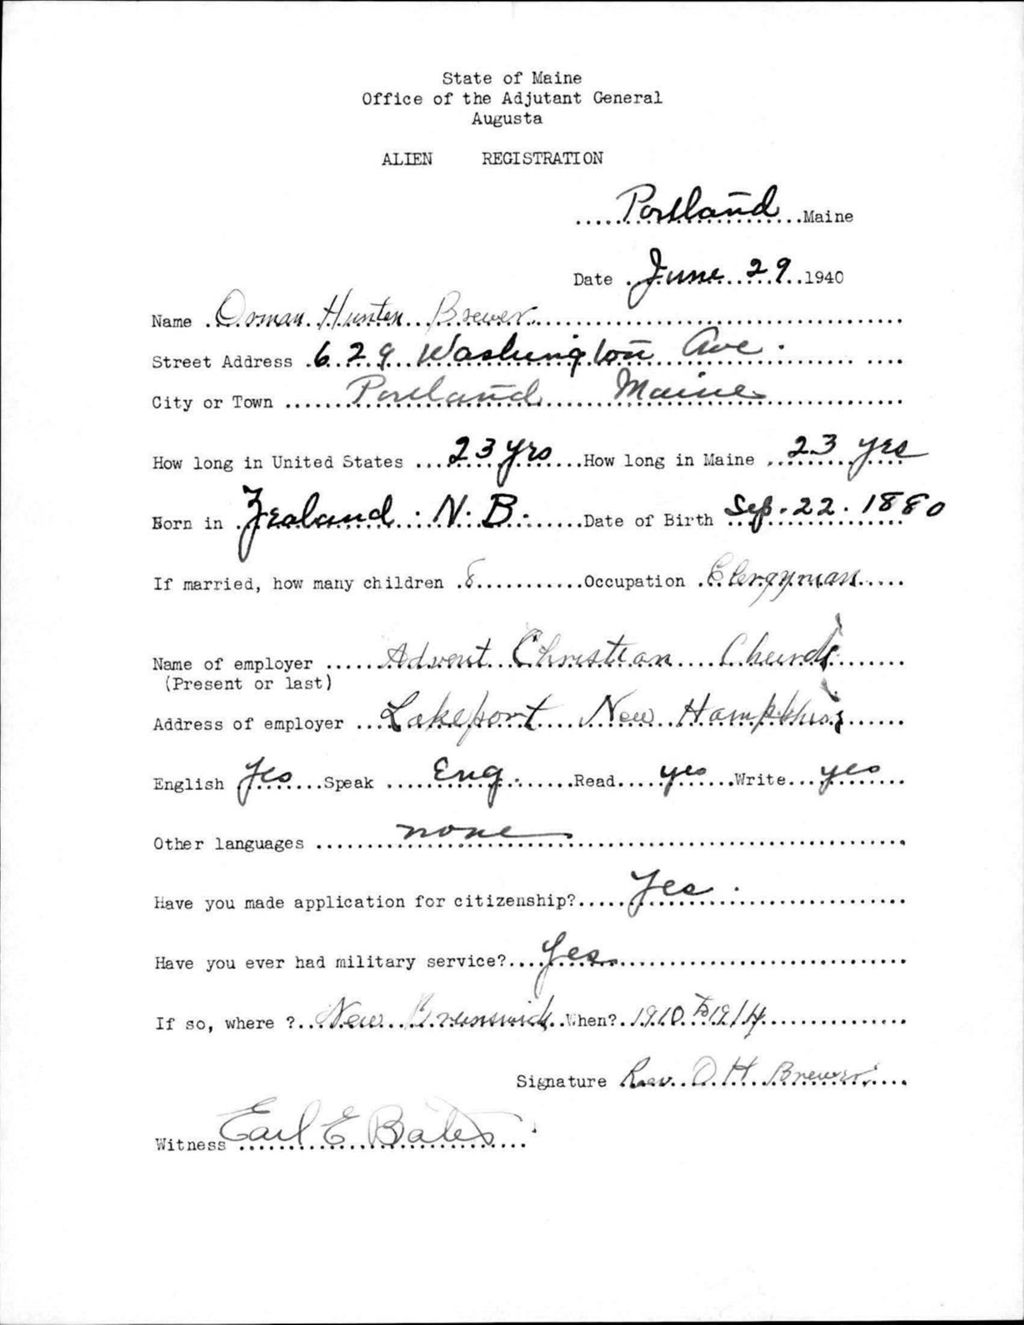 State of Maine
Office of the Adjutant General
Augusta
ALIEN REGISTRATION
Portland Maine
Date June 29 1940
Name Orman Hunter Brewer
Street Address 629 Washington Ave.
City or Town Portland Maine
How long in United States 23 yrs How long in Maine 23 yrs
Born in Zealand. N. B. Date of Birth Sep. 22. 1880
If married, how many children 8 Occupation Clergyman
Name of employer Advent Christian Church
(Present or last)
Address of employer Lakeport New Hampshire
English Yes Speak Eng. Read yes Write yes
Other languages none
Have you made application for citizenship? Yes.
Have you ever had military service? Yes
If so, where ? New Brunswick When? 1910 to 1914
Signature Rev. O. H. Brewer
Witness Earl E Bates